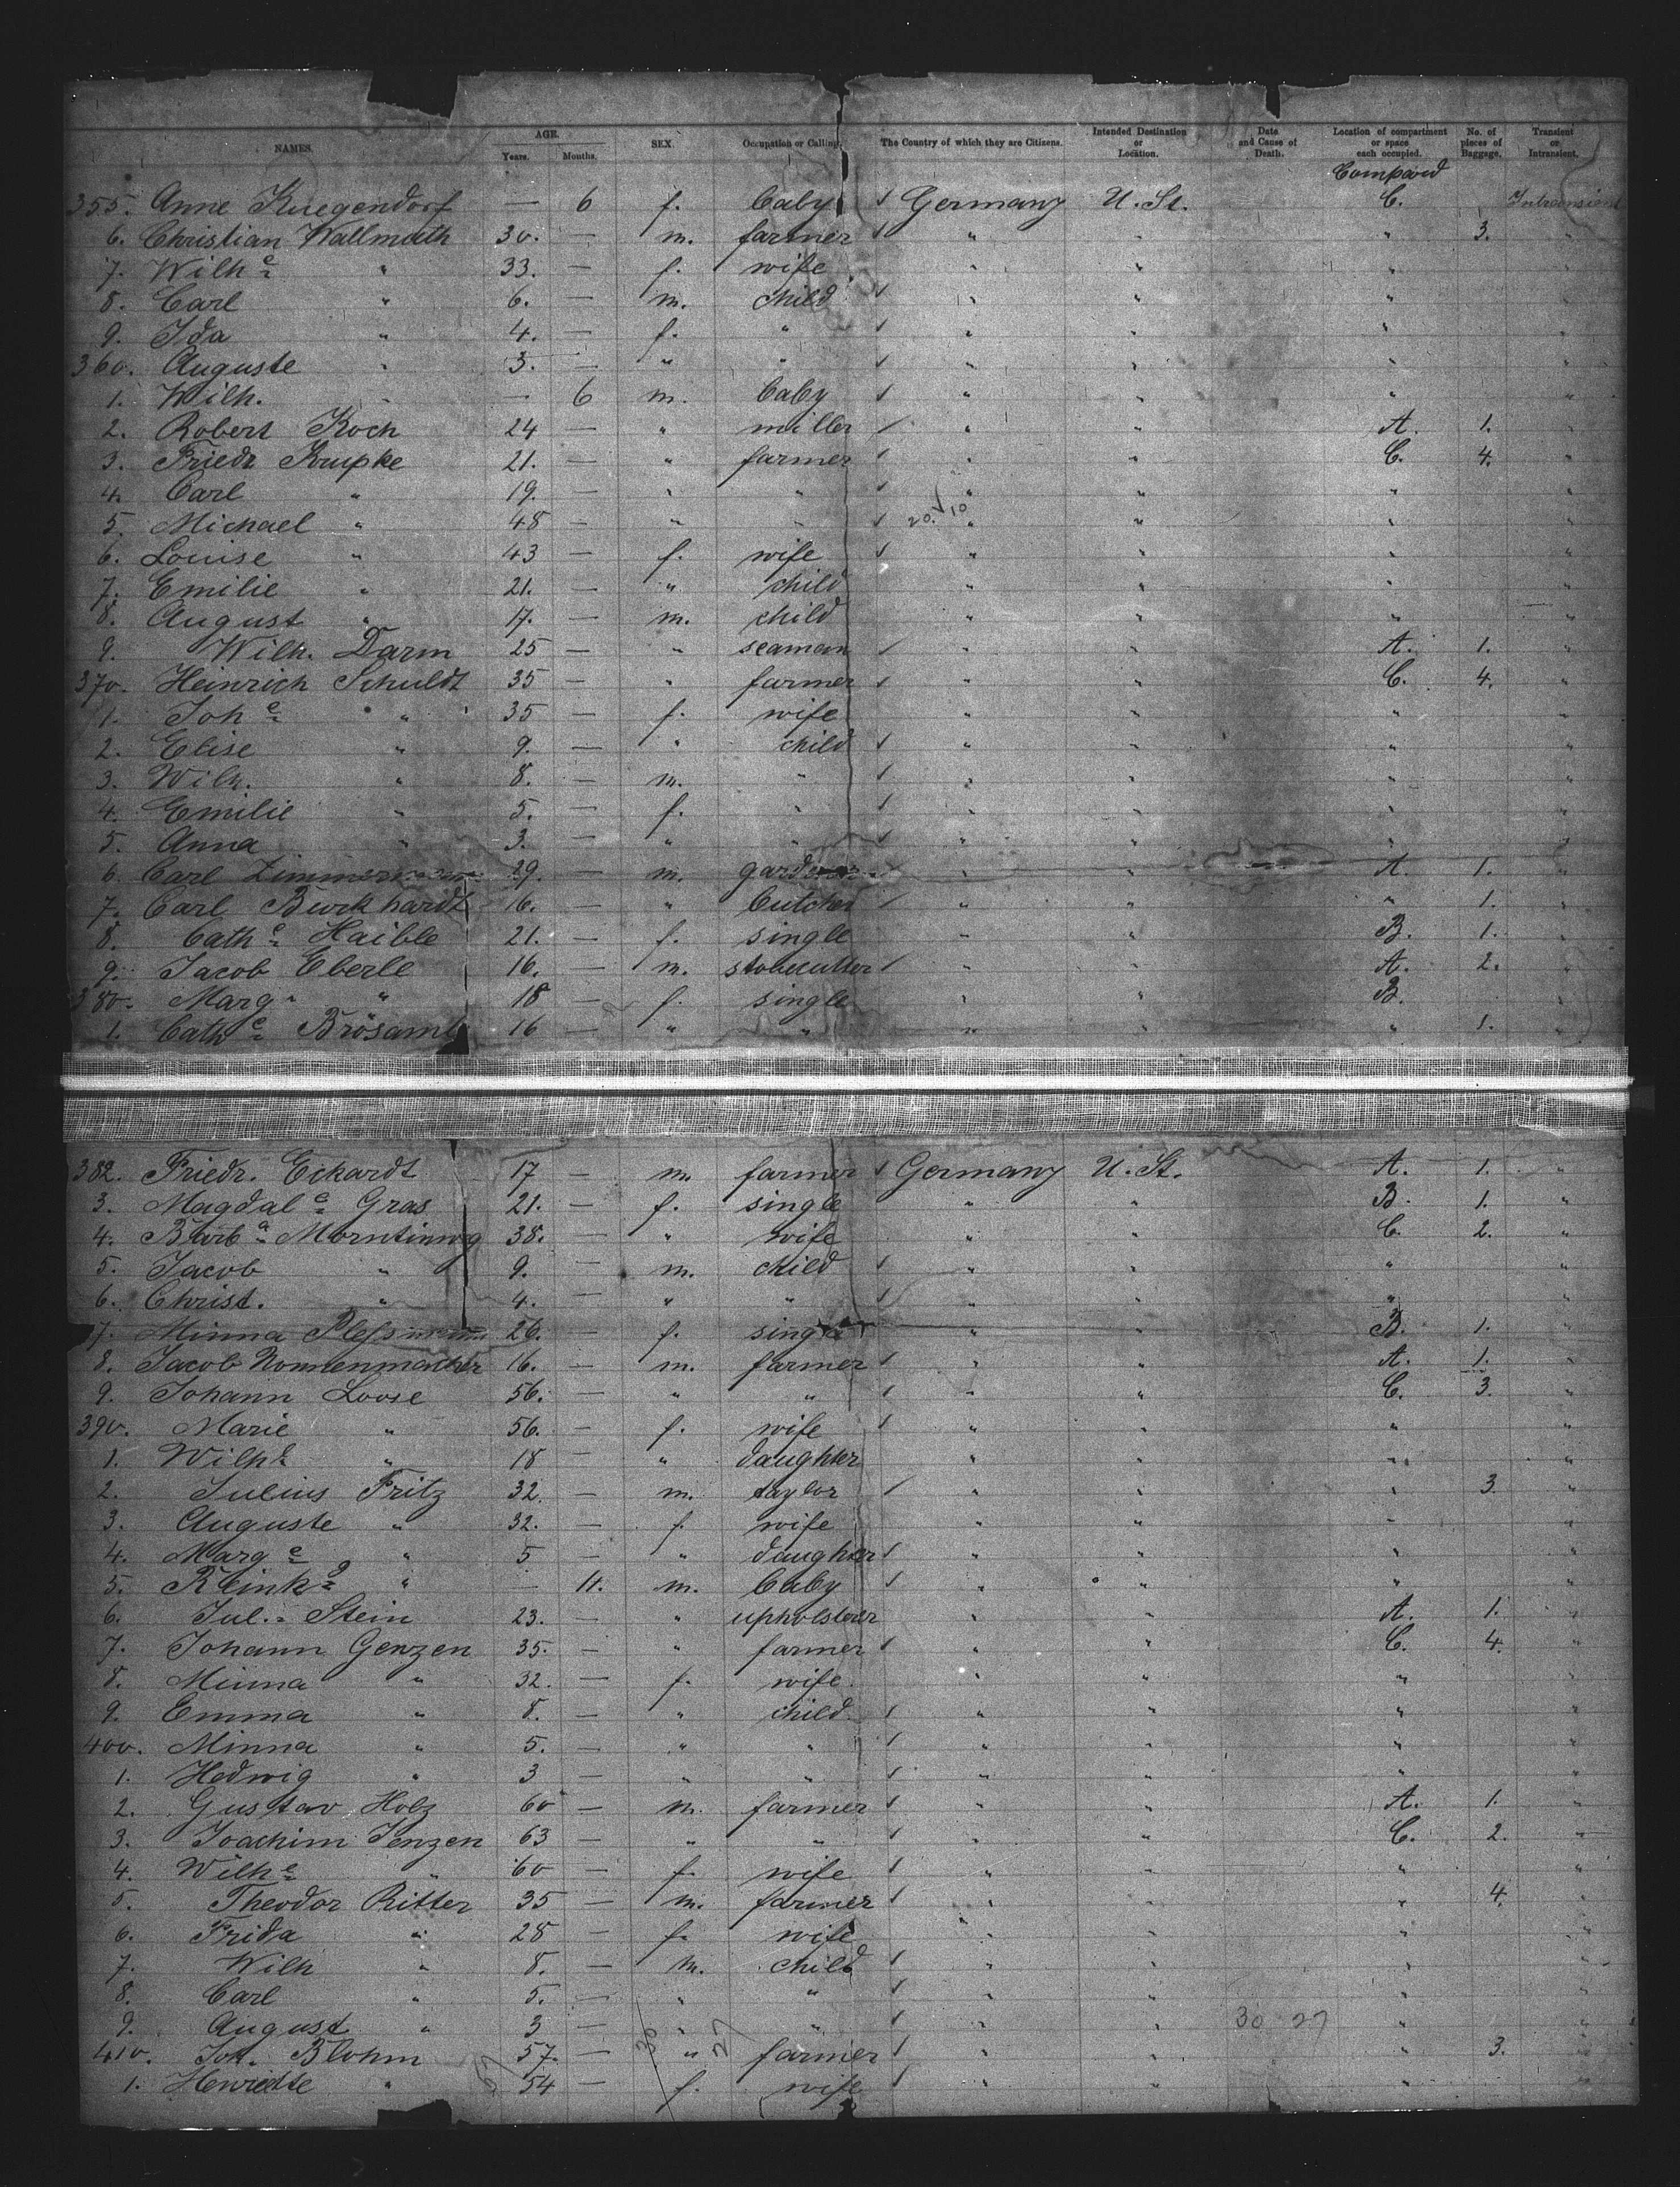 NAMES. AGE. Years. Months. SEX. Occupation or Calling. The Country of which they are Citizens. Intended Destination or Location. Date and Cause of Death. Location of compartment or space each occupied. No. of pieces of Baggage. Transient or Intransient.
355. Anne Kuegendorf — 6 f. baby Germany U. St. C. Intransient
6. Christian Wallmuth 30. — m. farmer " " " 3. "
7. Wilhe " 33. — f. wife " " " "
8. Carl " 6. — m. child " " " "
9. Ida " 4. — f. " " " " "
360. Auguste " 3. — " " " " " "
1. Wilh. " — 6 m. baby " " " "
2. Robert Koch 24 — " miller " " A. 1. "
3. Friedr Krupke 21. — " farmer " " C. 4. "
4. Carl " 19. — " " " " " "
5. Michael " 48 — " " 20/10 " " " "
6. Louise " 43 — f. wife " " " "
7. Emilie " 21. — " child " " " "
8. August " 17. — m. child " " " "
9. Wilh. Darm 25 — " seaman " " A. 1. "
370. Heinrich Schuldt 35 — " farmer " " C. 4. "
1. Johe " 35 — f. wife " " " "
2. Elise " 9. — " child " " " "
3. Wilh. " 8. — m. " " " " "
4. Emilie " 5. — f. " " " " "
5. Anna " 3. — " " " " " "
6. Carl Zimmermann 29. — m. gardener " " A. 1. "
7. Carl Burkhardt 16. — " butcher " " " 1. "
8. Cathe Haible 21. — f. single " " B. 1. "
9. Jacob Eberle 16. — m. stonecutter " " A. 2. "
380. Marg. " 18 — f. single " " B. "
1. Cathe Brösamle 16 — " " " " " 1. "
382. Friedr. Eckardt 17 — m. farmer Germany U. St. A. 1. "
3. Magdale Gras 21. — f. single " " B. 1. "
4. Barba 38. — " wife " " C. 2. "
5. Jacob " 9. — m. child " " " "
6. Christ. " 4. — " " " " " "
7. Minna Plessmann 26. — f. single " " B. 1. "
8. Jacob Nonnenmacher 16. — m. farmer " " A. 1. "
9. Johann Loose 56. — " " " " C. 3. "
390. Marie " 56. — f. wife " " " "
1. Wilhe " 18 — " daughter " " " "
2. Julius Fritz 32. — m. taylor " " " 3. "
3. Auguste " 32. — f. wife " " " "
4. Marge " 5 — " daughter " " " "
5. Reinhd " — 11. m. baby " " " "
6. Jul. Stein 23. — " upholsterer " " A. 1. "
7. Johann Genzen 35. — " farmer " " C. 4. "
8. Minna " 32. — f. wife " " " "
9. Emma " 8. — " child " " " "
400. Minna " 5. — " " " " " "
1. Hedwig " 3 — " " " " " "
2. Gustav Holz 60 — m. farmer " " A. 1. "
3. Joachim Jenzen 63 — " " " " C. 2. "
4. Wilhe " 60 — f. wife " " " "
5. Theodor Ritter 35 — m. farmer " " " 4. "
6. Frida " 28 — f. wife " " " "
7. Wilh " 8. — m. child " " " "
8. Carl " 5. — " " " " " "
9. August " 3 — " " " " 30 27 " "
410. Joh. Blohm 57. — " farmer " " " 3. "
1. Henriette " 54 — f. wife " " " "